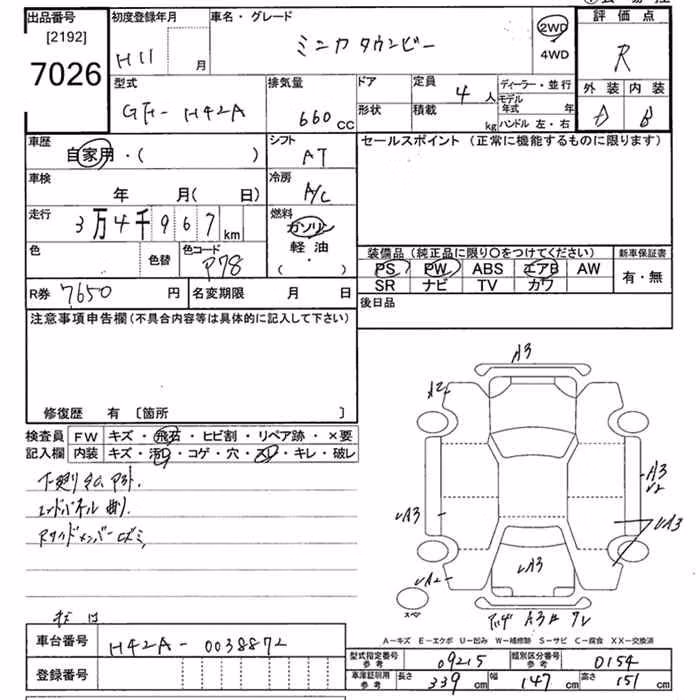 出品番号
[2192]
7026
初度登録年月
H11 月
車名・グレード
ミニカ タウンビー
2WD
4WD
評価点
R
外装 内装
D B
型式
GF- H42A
排気量
660 CC
ドア
形状
定員 4 人
積載 kg
ディーラー・並行
モデル年式 年
ハンドル 左・右
車歴
自家用・( )
シフト
AT
セールスポイント (正常に機能するものに限ります)
車検
年 月( 日)
冷房
A/C
走行
3万4千967 km
燃料
ガソリン
軽油
( ・ )
色
色替
色コード
P78
装備品 (純正品に限り〇をつけてください)
PS PW ABS エアB AW
SR ナビ TV カワ
新車保証書
有・無
R券 7650 円
名変期限 月 日
後日品
注意事項申告欄 (不具合内容等は具体的に記入して下さい)
修復歴 有 〔箇所 〕
検査員
記入欄
FW キズ・飛石・ヒビ割・リペア跡・×要
内装 キズ・汚れ・コゲ・穴・スレ・キレ・破レ
下廻り
エンドパネル曲り.
Rサイドメンバー
A3
A2
A3
A3
A3
A3
A2
A3
スペア
A-キズ E-エクボ U-凹み W-補修跡 S-サビ C-腐食 XX-交換済
車台番号
H42A-0038872
登録番号
型式指定番号
参考
09215
類別区分番号
参考
0154
車庫証明用
参考
長さ 339 cm
幅 147 cm
高さ 151 cm